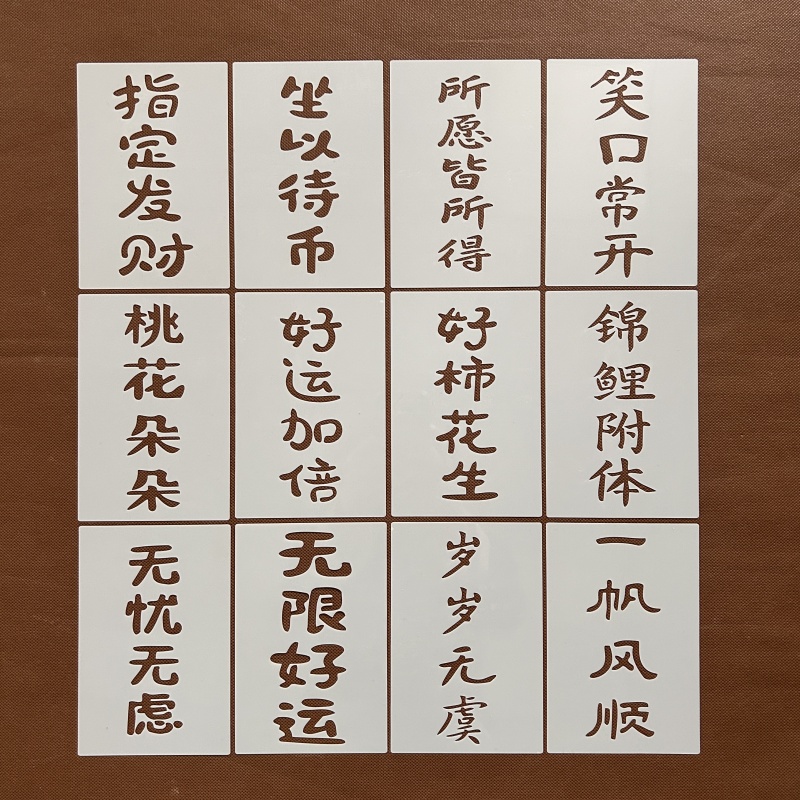 指定发财
坐以待币
所愿皆所得
笑口常开
桃花朵朵
好运加倍
好柿花生
锦鲤附体
无忧无虑
无限好运
岁岁无虞
一帆风顺